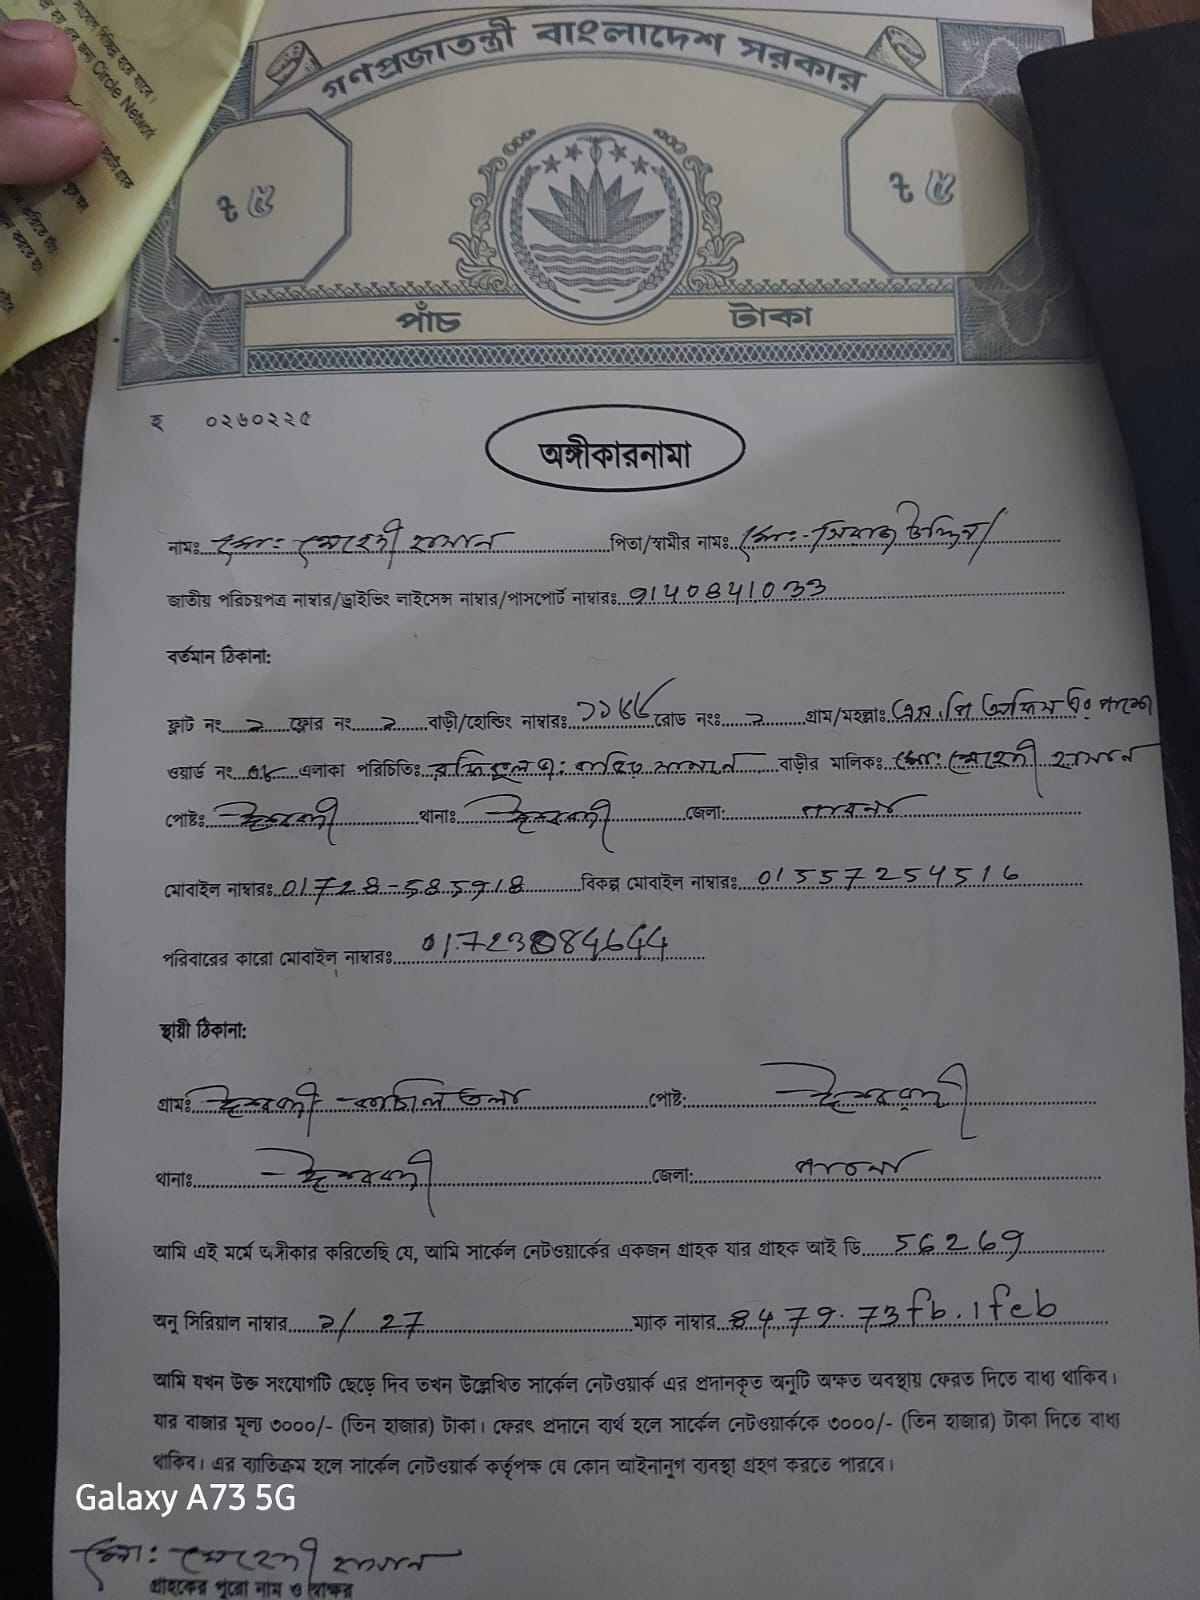 গণপ্রজাতন্ত্রী বাংলাদেশ সরকার
৳ ৫
৳ ৫
পাঁচ টাকা
Circle Network
হ ০২৬০২২৫
অঙ্গীকারনামা
নামঃ মোঃ মেহেদী হাসান পিতা/স্বামীর নামঃ মোঃ- সিরাজ উদ্দিন
জাতীয় পরিচয়পত্র নাম্বার/ড্রাইভিং লাইসেন্স নাম্বার/পাসপোর্ট নাম্বারঃ 9140841033
বর্তমান ঠিকানা:
ফ্লাট নং ২ ফ্লোর নং ২ বাড়ী/হোল্ডিং নাম্বারঃ রোড নংঃ ২ গ্রাম/মহল্লাঃ এস.পি অফিস এর পাশে
ওয়ার্ড নং এলাকা পরিচিতিঃ বাড়ীর মালিকঃ মোঃ মেহেদী হাসান
পোষ্টঃ ঈশ্বরদী থানাঃ ঈশ্বরদী জেলা: পাবনা
মোবাইল নাম্বারঃ 01728-585918 বিকল্প মোবাইল নাম্বারঃ 01557254516
পরিবারের কারো মোবাইল নাম্বারঃ
স্থায়ী ঠিকানা:
গ্রামঃ ঈশ্বরদী পোষ্ট: ঈশ্বরদী
থানাঃ ঈশ্বরদী জেলা: পাবনা
আমি এই মর্মে অঙ্গীকার করিতেছি যে, আমি সার্কেল নেটওয়ার্কের একজন গ্রাহক যার গ্রাহক আই ডি 56269
অনু সিরিয়াল নাম্বার ২/ 27 ম্যাক নাম্বার 8479.73fb.1feb
আমি যখন উক্ত সংযোগটি ছেড়ে দিব তখন উল্লেখিত সার্কেল নেটওয়ার্ক এর প্রদানকৃত অনুটি অক্ষত অবস্থায় ফেরত দিতে বাধ্য থাকিব।
যার বাজার মূল্য ৩০০০/- (তিন হাজার) টাকা। ফেরৎ প্রদানে ব্যর্থ হলে সার্কেল নেটওয়ার্ককে ৩০০০/- (তিন হাজার) টাকা দিতে বাধ্য
থাকিব। এর ব্যতিক্রম হলে সার্কেল নেটওয়ার্ক কর্তৃপক্ষ যে কোন আইনানুগ ব্যবস্থা গ্রহণ করতে পারবে।
Galaxy A73 5G
মোঃ মেহেদী হাসান
গ্রাহকের পুরো নাম ও স্বাক্ষর